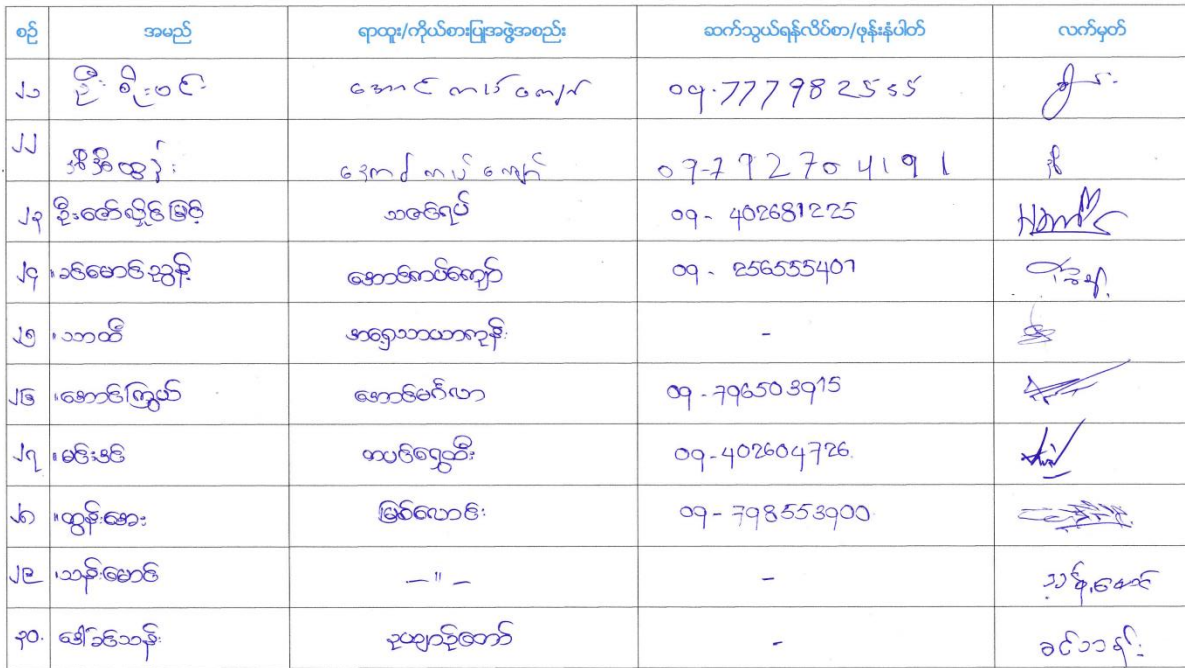 စဉ် အမည် ရာထူး/ကိုယ်စားပြုအဖွဲ့အစည်း ဆက်သွယ်ရန်လိပ်စာ/ဖုန်းနံပါတ် လက်မှတ်
၂၁ ဦးစိုးဝင်း အောင်ကပ်ကျော် 09-777982555
၂၂ အောင်ကပ်ကျော် 09-792704191
၂၃ ဦးဇော်လှိုင်မြင့် သဇင်ရပ် 09-402681225
၂၄ " ခင်မောင်ညွန့် အောင်ကပ်ကျော် 09-256555401
၂၅ " သာထီ အရှေ့သာယာကုန်း -
၂၆ " အောင်ကြွယ် အောင်မင်္ဂလာ 09-796503915
၂၇ " မင်းဒင် တပင်ရွှေထီး 09-402604726
၂၈ " ထွန်းအေး မြစ်လောင်း 09-798553900
၂၉ " သန်းမောင် — " — - သန်းမောင်
၃၀. ဒေါ်ခင်သန်း ဥယျာဉ်တော် - ခင်သန်း